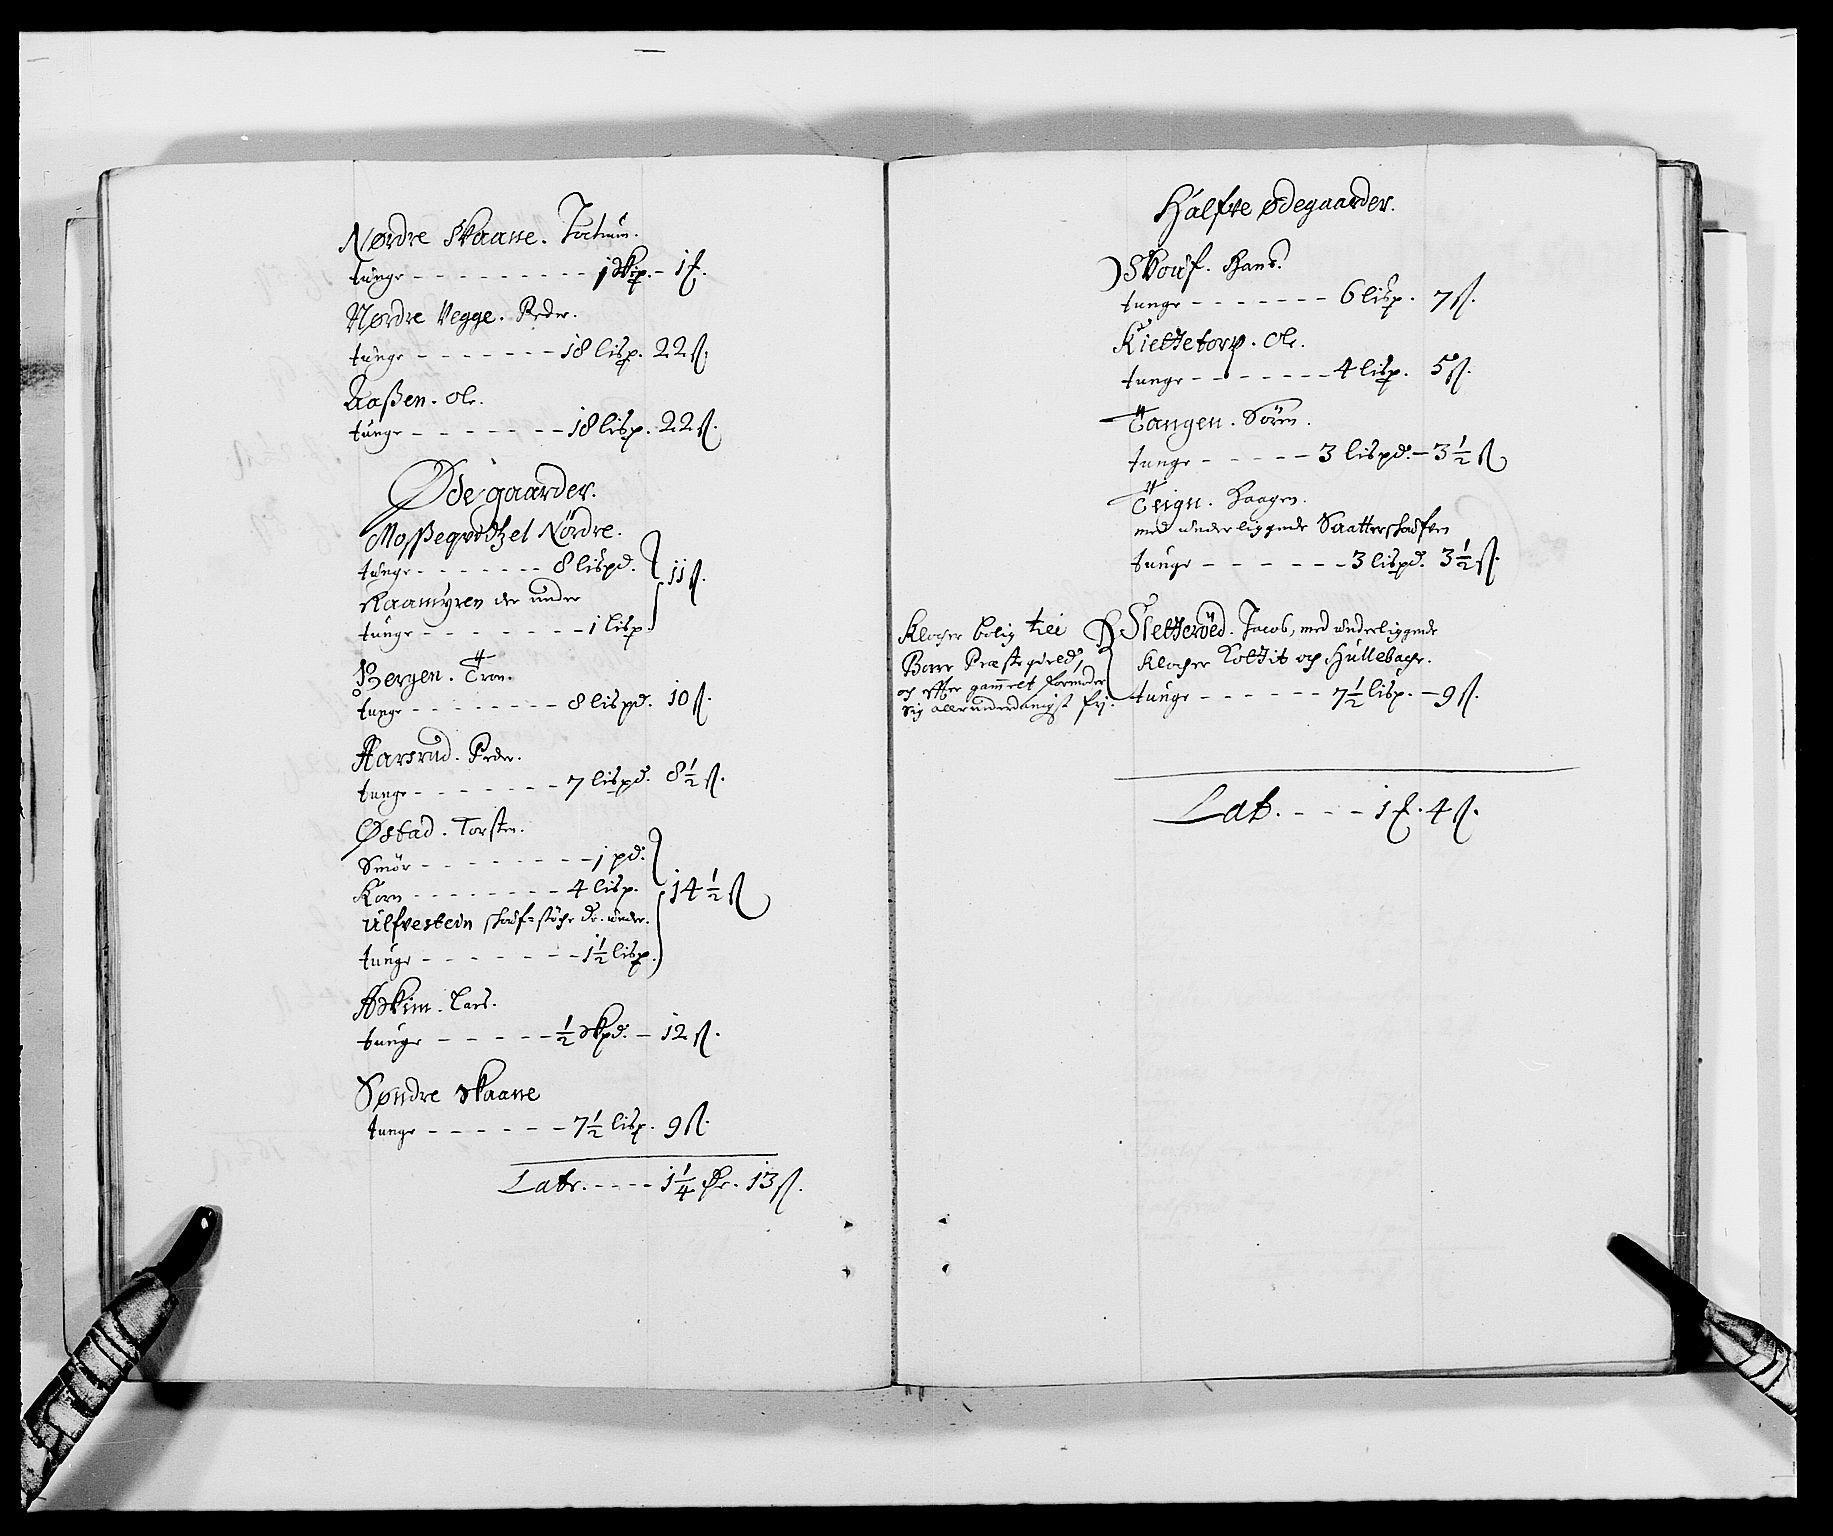 Nørdre Skaane.
tunge - - - - - - - - - 1 Skp. - 1 f.
Nørdre Vegge. Peder.
tunge - - - - - - - 18 lisp. 22 ß.
Aaßen. Ole.
tunge - - - - - - - 18 lisp. 22 ß.
Ødegaarder.
Nørdre.
tunge - - - - - - - 8 lispd. } 11 ß.
Raamyren der under
tunge - - - - - - - 1 lisp.
Bergen. Tron.
tunge - - - - - - - - 8 lispd. 10 ß.
Aarsrud. Peder.
tunge - - - - - - - 7 lispd. 8 1/2 ß.
Østad. Torsten.
Smör - - - - - - - - - 1 pd.
Korn - - - - - - - - 4 lisp. } 14 1/2 ß
Ulfvestein der under.
tunge - - - - - - - 1 1/2 lisp.
Askim. Lars.
tunge - - - - - 1/2 Skpd. - 12 ß.
Søndre Skaane
tunge - - - - - - 7 1/2 lisp. 9 ß.
Latr. - - - - 1 1/4 13 ß.
Halfve Ødegaarder.
Skouf. Hans.
tunge - - - - - - - 6 lisp. 7 ß.
Kietzetorp. Ole.
tunge - - - - - - - 4 lisp. 5 ß.
Tangen. Sörn.
tunge - - - - - 3 lispd. - 3 1/2 ß
Teign. Haagen.
med underliggende
tunge - - - - - - 3 lispd. 3 1/2 ß.
Klocher bolig
Præstegield,
og efter gammelt
sig allerunderdanigst fri.
Slettevöed. Jacob, med underliggende
Klocher og Hullebach.
tunge - - - - - - 7 1/2 lisp. - 9 ß.
Lat. - - - 1 f. 4 ß.